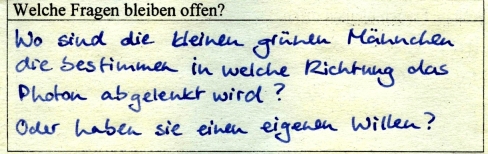 Welche Fragen bleiben offen?
Wo sind die kleinen grünen Männchen
die bestimmen in welche Richtung das
Photon abgelenkt wird?
Oder haben sie einen eigenen Willen?